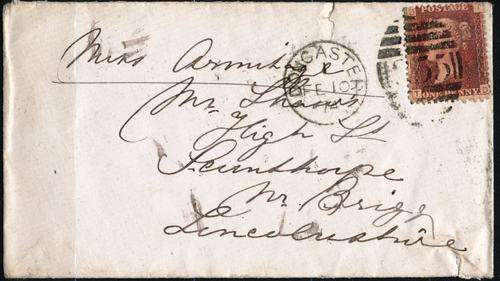 Miss Armitage
Mr Shaws
High St
Scunthorpe
Nr Brigg
Lincolnshire
DONCASTER
FE 10
POSTAGE
ONE PENNY